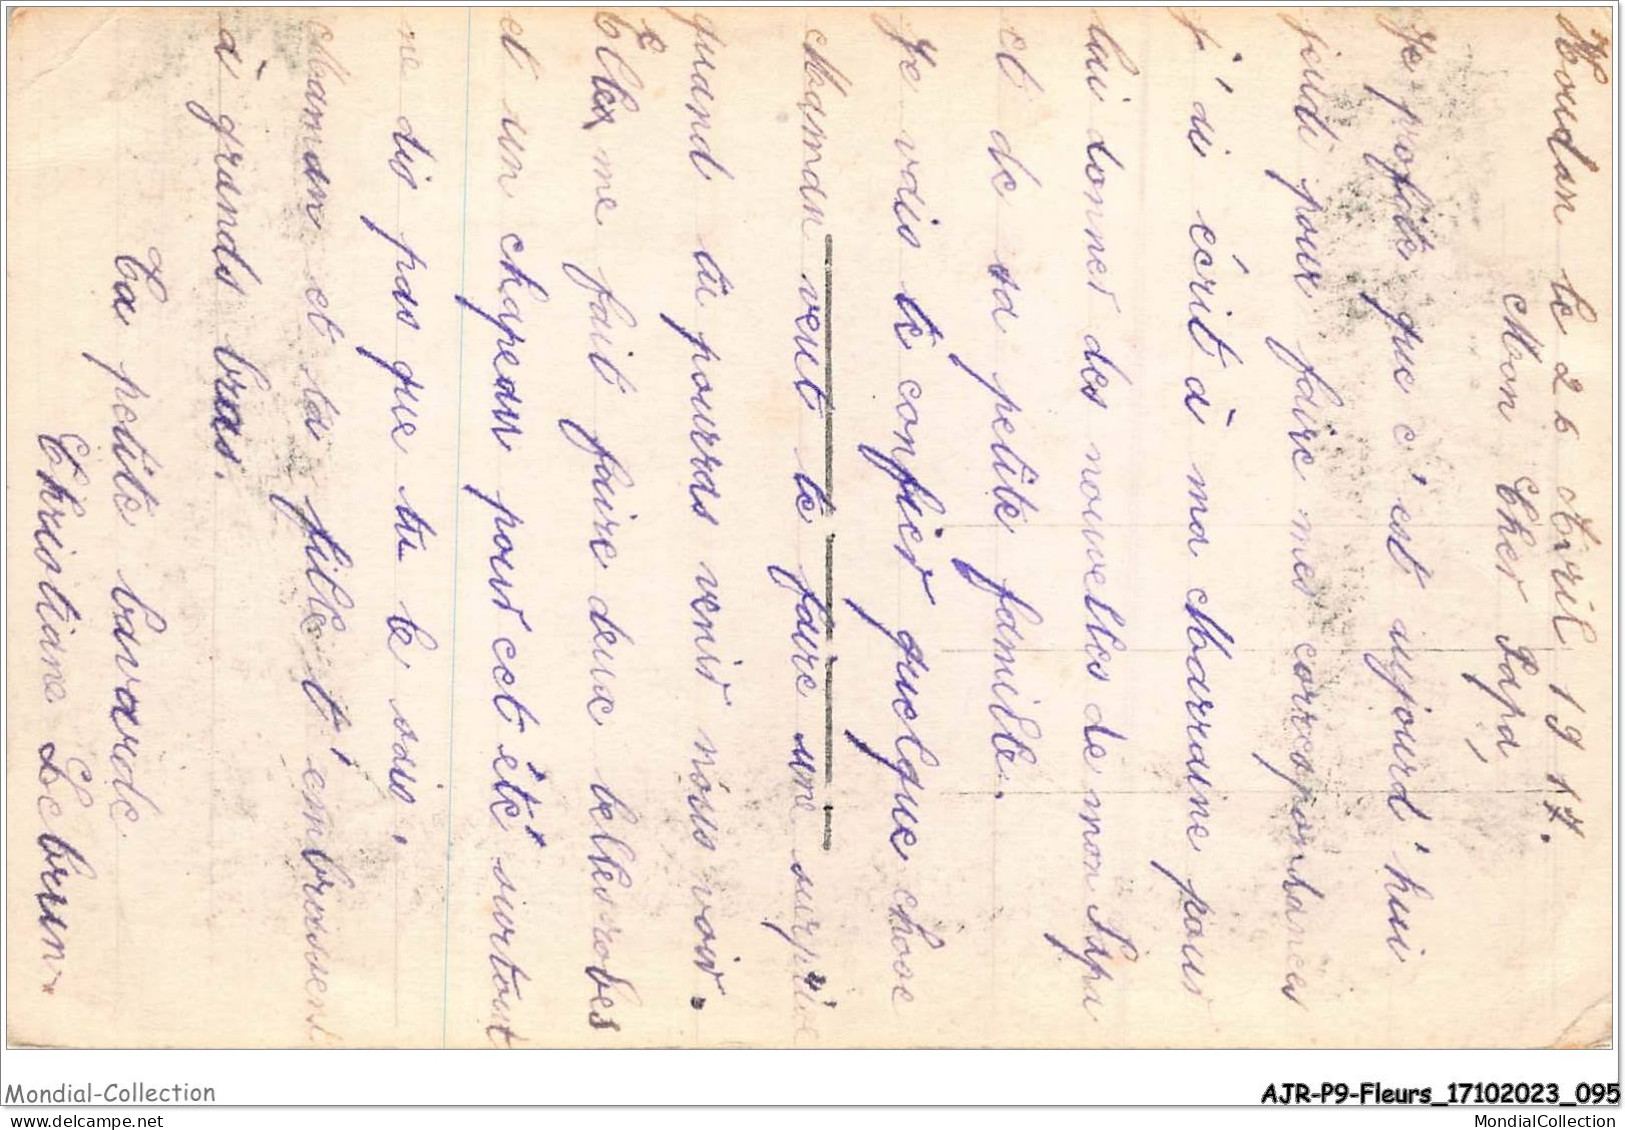 Houdan le 26 Avril 1917.
Mon Cher Papa,
Je profite que c'est aujourd'hui
jeudi pour faire mes correspondances
j'ai écrit à ma Marraine pour
lui donner des nouvelles de mon Papa
et de sa petite famille.
Je vais te confier quelque chose
Maman veut te faire une surprise
quand tu pourras venir nous voir.
Elle me fait faire deux belles robes
et un chapeau pour cet été surtout
ne dis pas que tu le sais.
Maman et ta fille t'embrassent
à grands bras.
Ta petite bavarde
Christiane Lebrun
Mondial-Collection
AJR-P9-Fleurs_17102023_095
delcampe.net
MondialCollection